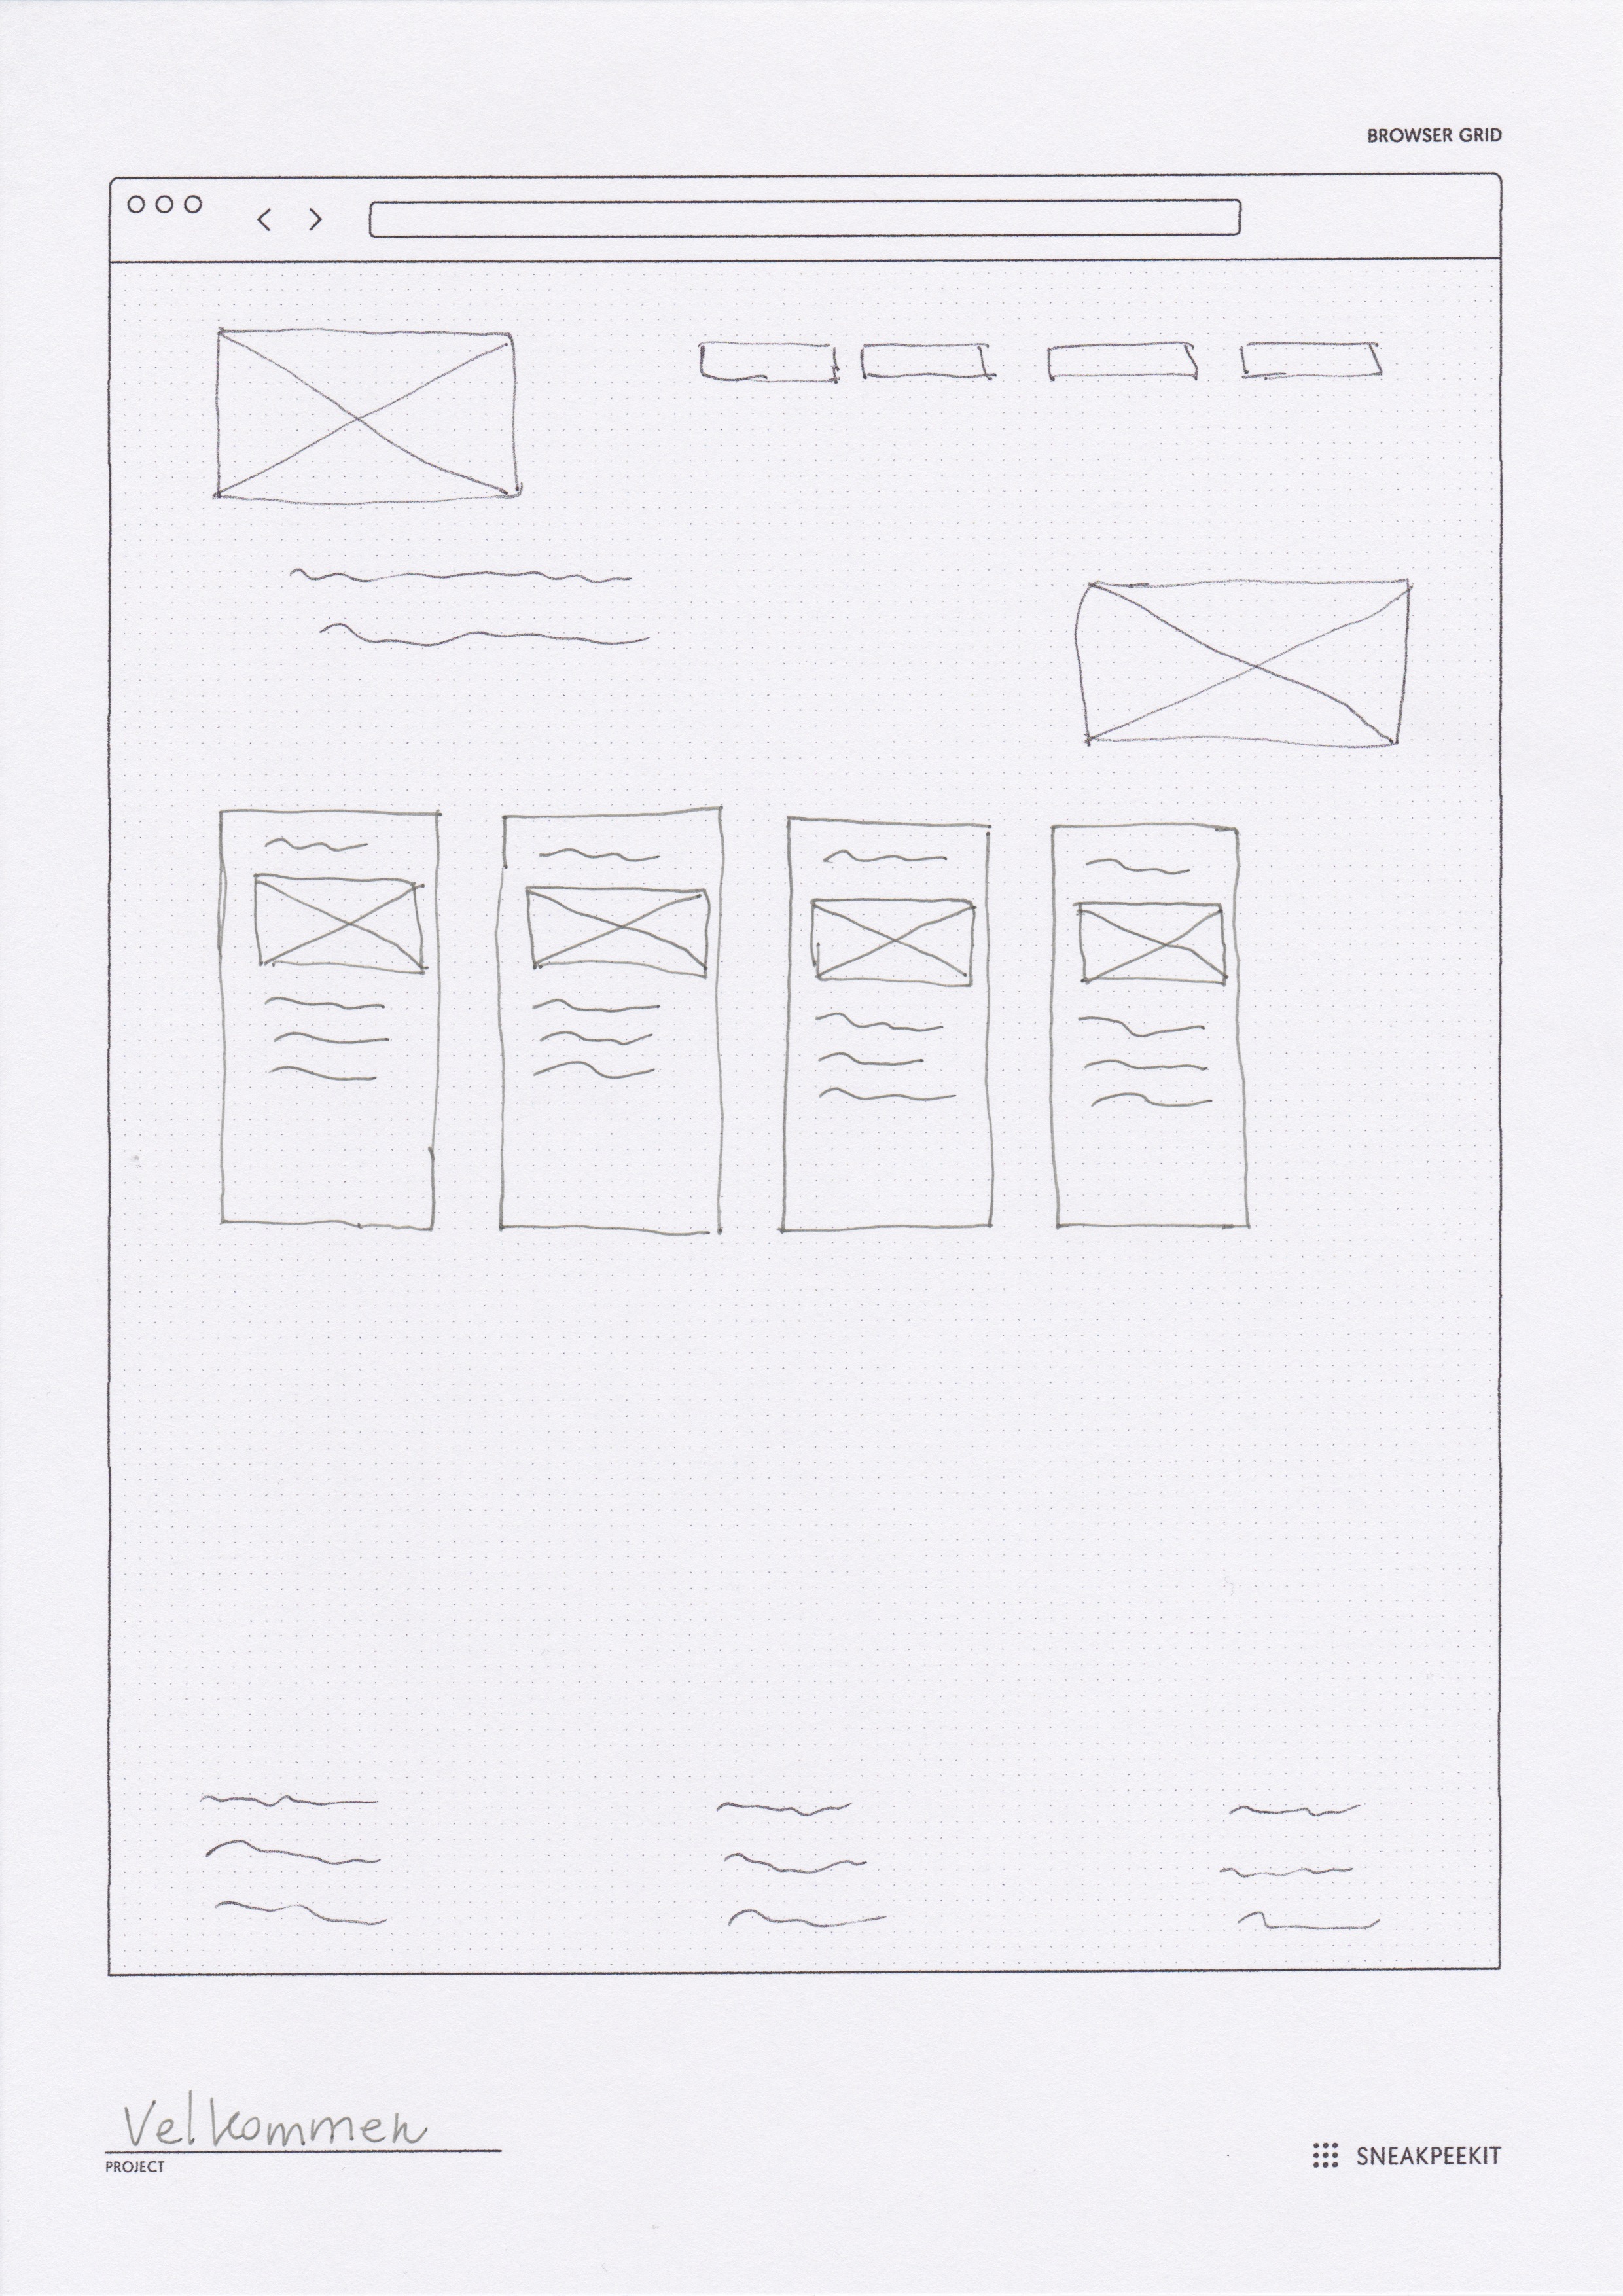 BROWSER GRID
Velkommen
PROJECT
SNEAKPEEKIT